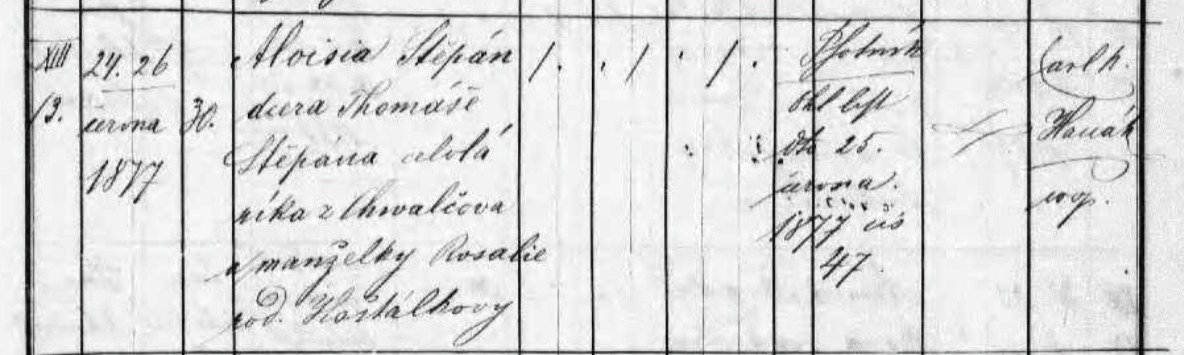 XIII 24. 26 Aloisia Štěpán /. . / . / . Psotník Carl h.
13. června 30. dcera Thomáše ohl. list Hanák
1877 Štěpána celolá dto 25.
níka z Chwalčova června. 
a manželky Rosalie 1877 čís
rod. Hoštálkovy 47